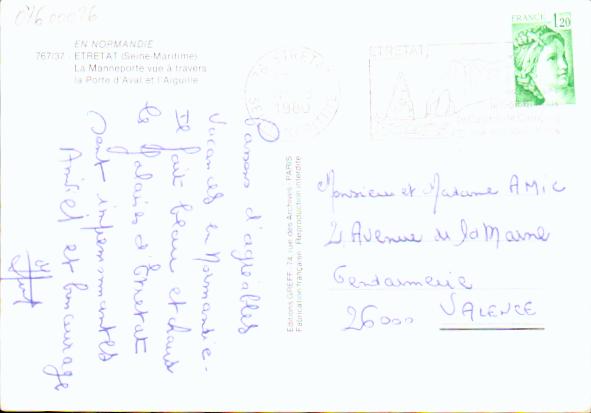 07600026
EN NORMANDIE
767/37 - ETRETAT (Seine-Maritime)
La Manneporte vue à travers
la Porte d'Aval et l'Aiguille
FRANCE 1,20
ETRETAT
1980
Passons d'agréables
vacances en Normandie.
Il fait beau et chaud
les falaises d'Etretat
sont impressionnantes
Amitiés et bon courage
Editions GREFF, 74, rue des Archives - PARIS
Fabrication française - Reproduction interdite
Monsieur et Madame AMIC
2 Avenue de la Marne
Gendarmerie
26000 VALENCE